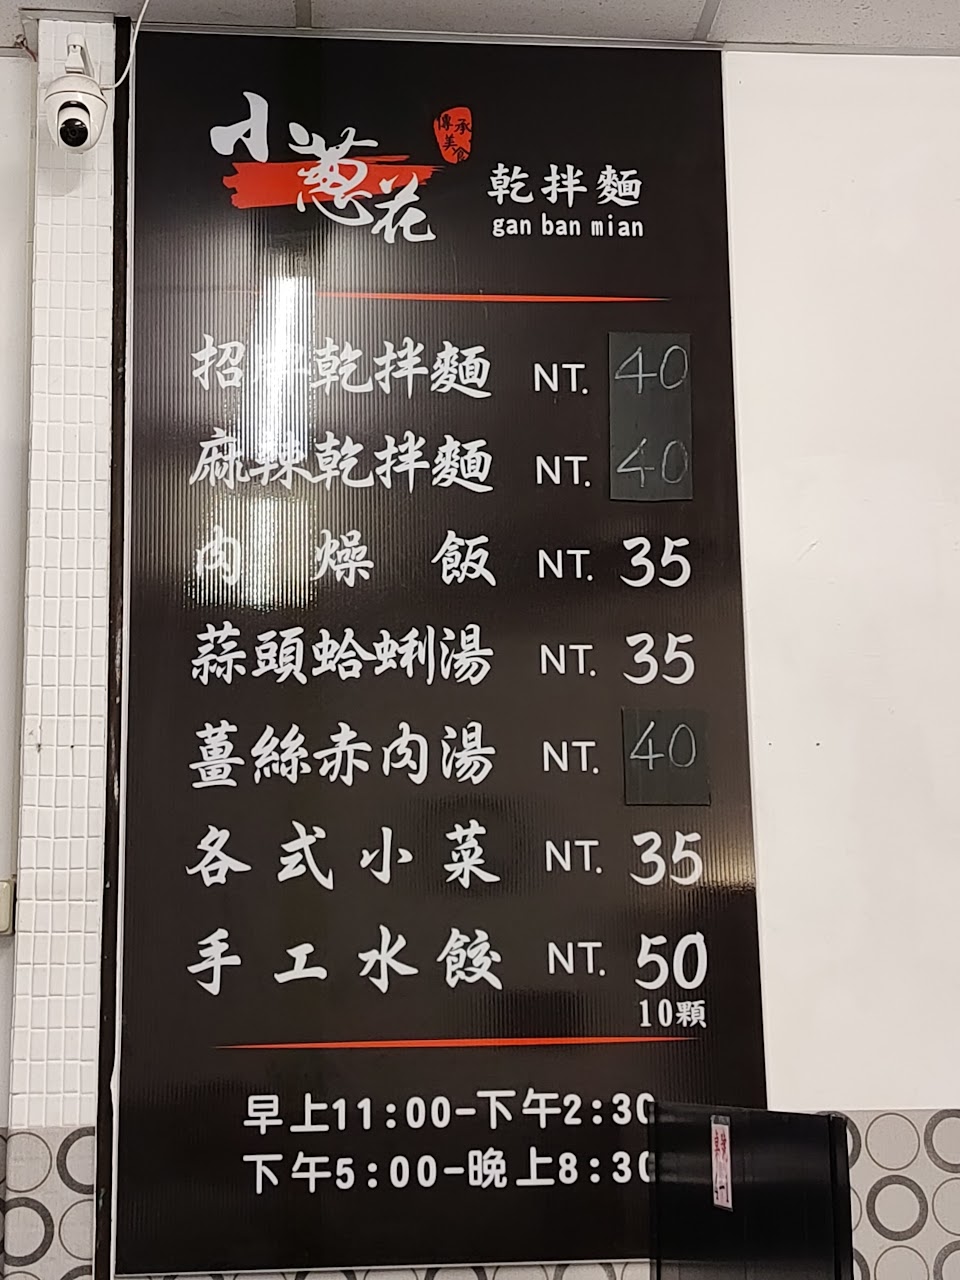 小蔥花
傳承
美食
乾拌麵
gan ban mian
招牌乾拌麵 NT. 40
麻辣乾拌麵 NT. 40
肉燥飯 NT. 35
蒜頭蛤蜊湯 NT. 35
薑絲赤肉湯 NT. 40
各式小菜 NT. 35
手工水餃 NT. 50
10顆
早上11:00-下午2:30
下午5:00-晚上8:30